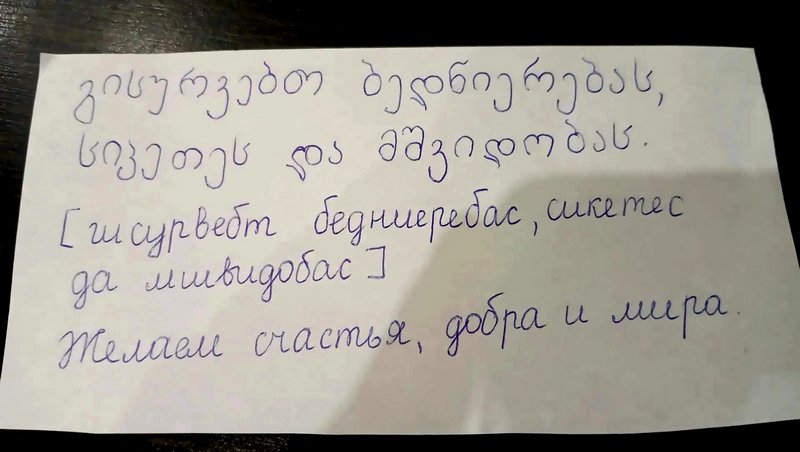 გისურვებთ ბედნიერებას,
სიკეთეს და მშვიდობას.
[гисурвебт бедниеребас, сикетес
да мшвидобас]
Желаем счастья, добра и мира.